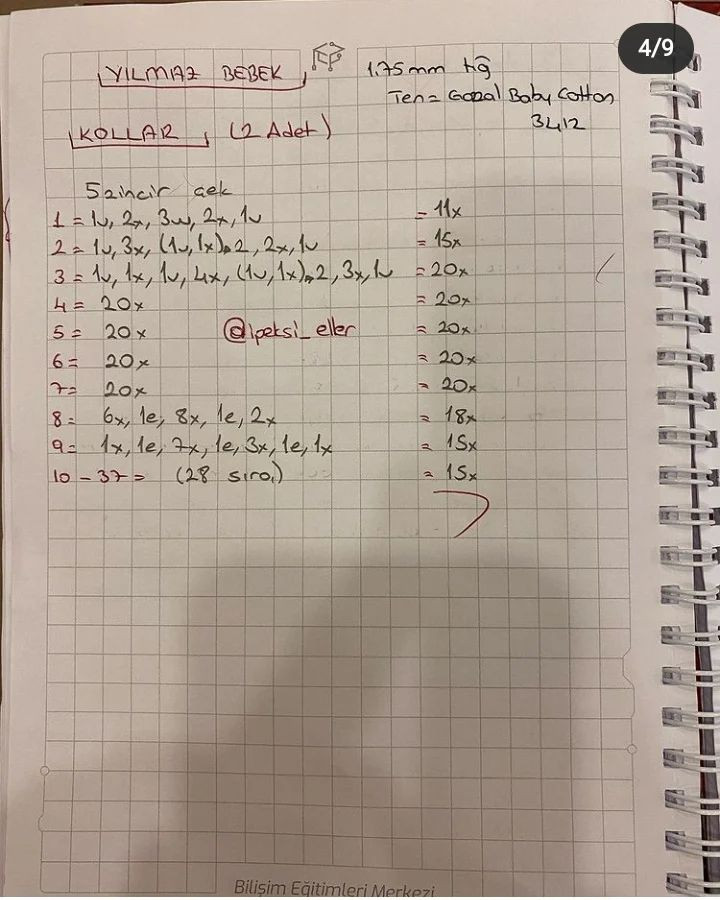 4/9
YILMAZ BEBEK, 1.75 mm tığ
Ten = Gazal Baby Cotton
3412
KOLLAR, (2 Adet)
5 zincir çek
1 = 1v, 2x, 3w, 2x, 1v = 11x
2 = 1v, 3x, (1v, 1x)*2, 2x, 1v = 15x
3 = 1v, 1x, 1v, 4x, (1v, 1x)*2, 3x, 1v = 20x
4 = 20x = 20x
5 = 20x @ipeksi_eller = 20x
6 = 20x = 20x
7 = 20x = 20x
8 = 6x, 1e, 8x, 1e, 2x = 18x
9 = 1x, 1e, 7x, 1e, 3x, 1e, 1x = 15x
10 - 37 = (28 sıra) = 15x
Bilişim Eğitimleri Merkezi